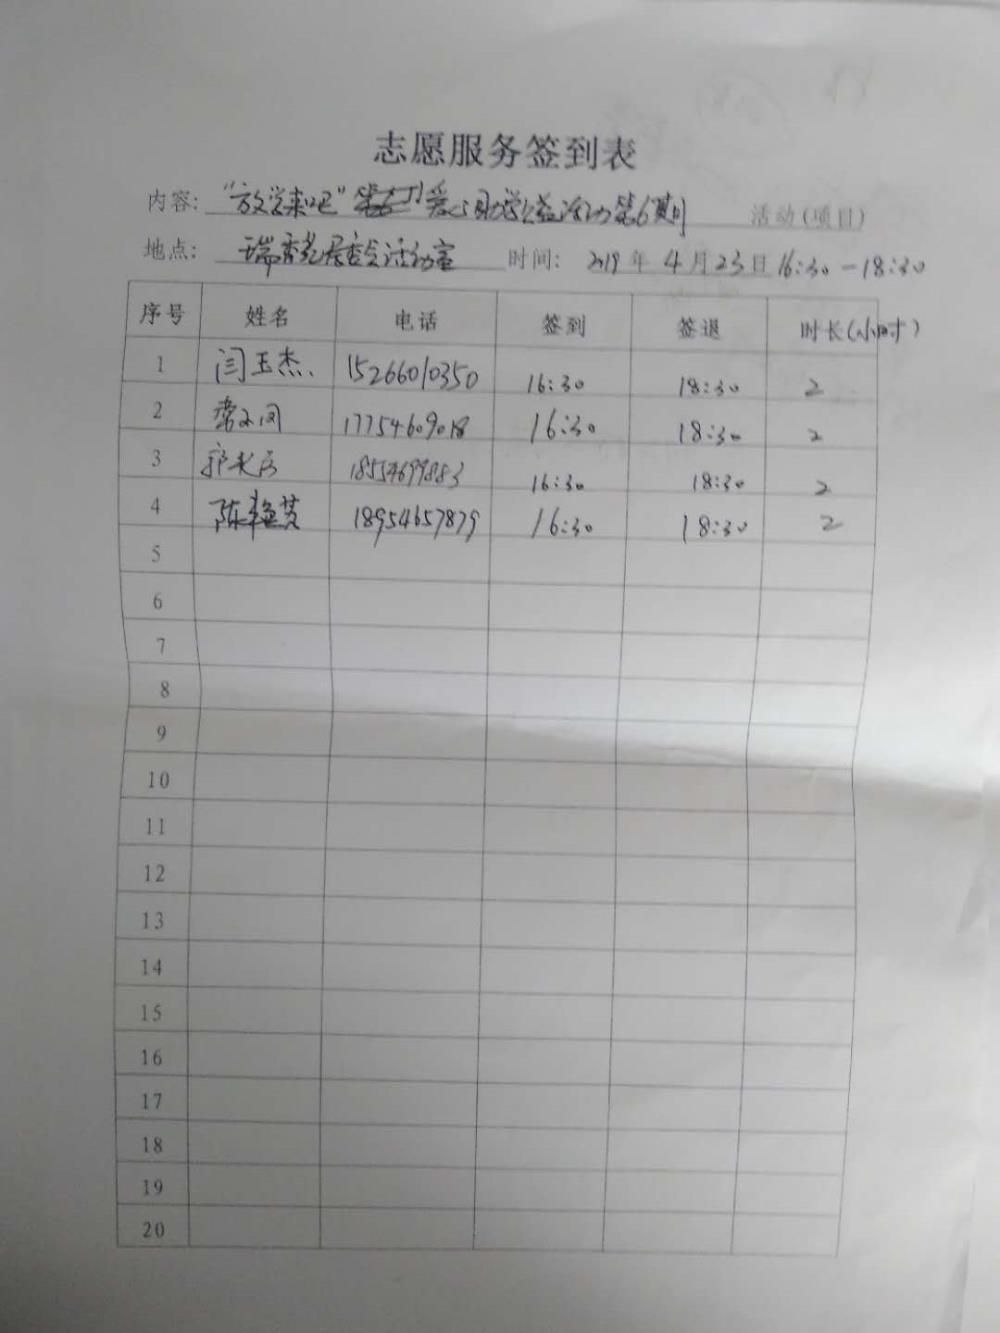 志愿服务签到表
内容: "放学来吧" 爱心助学公益活动第6期 活动(项目)
地点: 瑞香苑居委会活动室 时间: 2019年4月23日16:30-18:30
序号 姓名 电话 签到 签退 时长(小时)
1 闫玉杰 15266010350 16:30 18:30 2
2 16:30 18:30 2
3 16:30 18:30 2
4 陈 18954657879 16:30 18:30 2
5
6
7
8
9
10
11
12
13
14
15
16
17
18
19
20